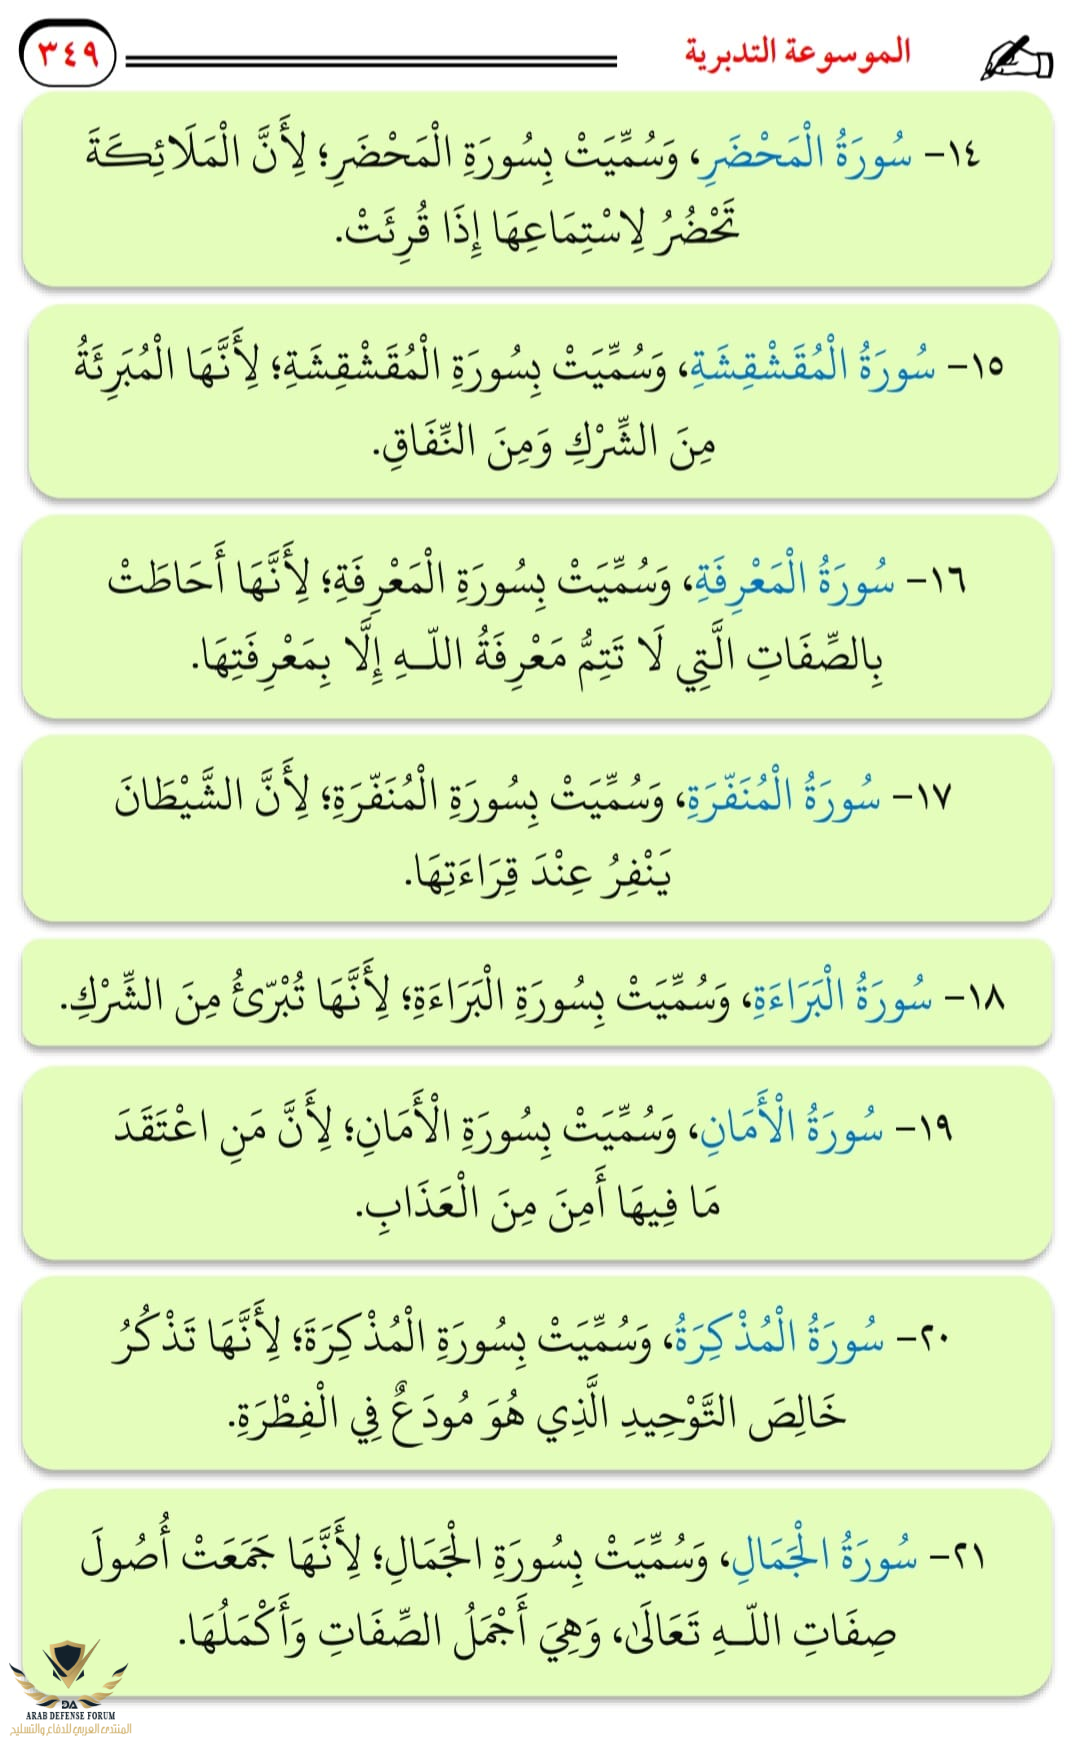 الموسوعة التدبرية
٣٤٩
١٤- سُورَةُ الْمَحْضَرِ، وَسُمِّيَتْ بِسُورَةِ الْمَحْضَرِ؛ لِأَنَّ الْمَلَائِكَةَ
تَحْضُرُ لِاسْتِمَاعِهَا إِذَا قُرِئَتْ.
١٥- سُورَةُ الْمُقَشْقِشَةِ، وَسُمِّيَتْ بِسُورَةِ الْمُقَشْقِشَةِ؛ لِأَنَّهَا الْمُبَرِئَةُ
مِنَ الشِّرْكِ وَمِنَ النِّفَاقِ.
١٦- سُورَةُ الْمَعْرِفَةِ، وَسُمِّيَتْ بِسُورَةِ الْمَعْرِفَةِ؛ لِأَنَّهَا أَحَاطَتْ
بِالصِّفَاتِ الَّتِي لَا تَتِمُّ مَعْرِفَةُ اللّـهِ إِلَّا بِمَعْرِفَتِهَا.
١٧- سُورَةُ الْمُنَفّرَةِ، وَسُمِّيَتْ بِسُورَةِ الْمُنَفّرَةِ؛ لِأَنَّ الشَّيْطَانَ
يَنْفِرُ عِنْدَ قِرَاءَتِهَا.
١٨- سُورَةُ الْبَرَاءَةِ، وَسُمِّيَتْ بِسُورَةِ الْبَرَاءَةِ؛ لِأَنَّهَا تُبْرّئُ مِنَ الشِّرْكِ.
١٩- سُورَةُ الْأَمَانِ، وَسُمِّيَتْ بِسُورَةِ الْأَمَانِ؛ لِأَنَّ مَنِ اعْتَقَدَ
مَا فِيهَا أَمِنَ مِنَ الْعَذَابِ.
٢٠- سُورَةُ الْمُذْكِرَةُ، وَسُمِّيَتْ بِسُورَةِ الْمُذْكِرَةَ؛ لِأَنَّهَا تَذْكُرُ
خَالِصَ التَّوْحِيدِ الَّذِي هُوَ مُودَعٌ فِي الْفِطْرَةِ.
٢١- سُورَةُ الْجَمَالِ، وَسُمِّيَتْ بِسُورَةِ الْجَمَالِ؛ لِأَنَّهَا جَمَعَتْ أُصُولَ
صِفَاتِ اللّـهِ تَعَالَى، وَهِيَ أَجْمَلُ الصِّفَاتِ وَأَكْمَلُهَا.
DA
ARAB DEFENSE FORUM
المنتدى العربي للدفاع والتسليح